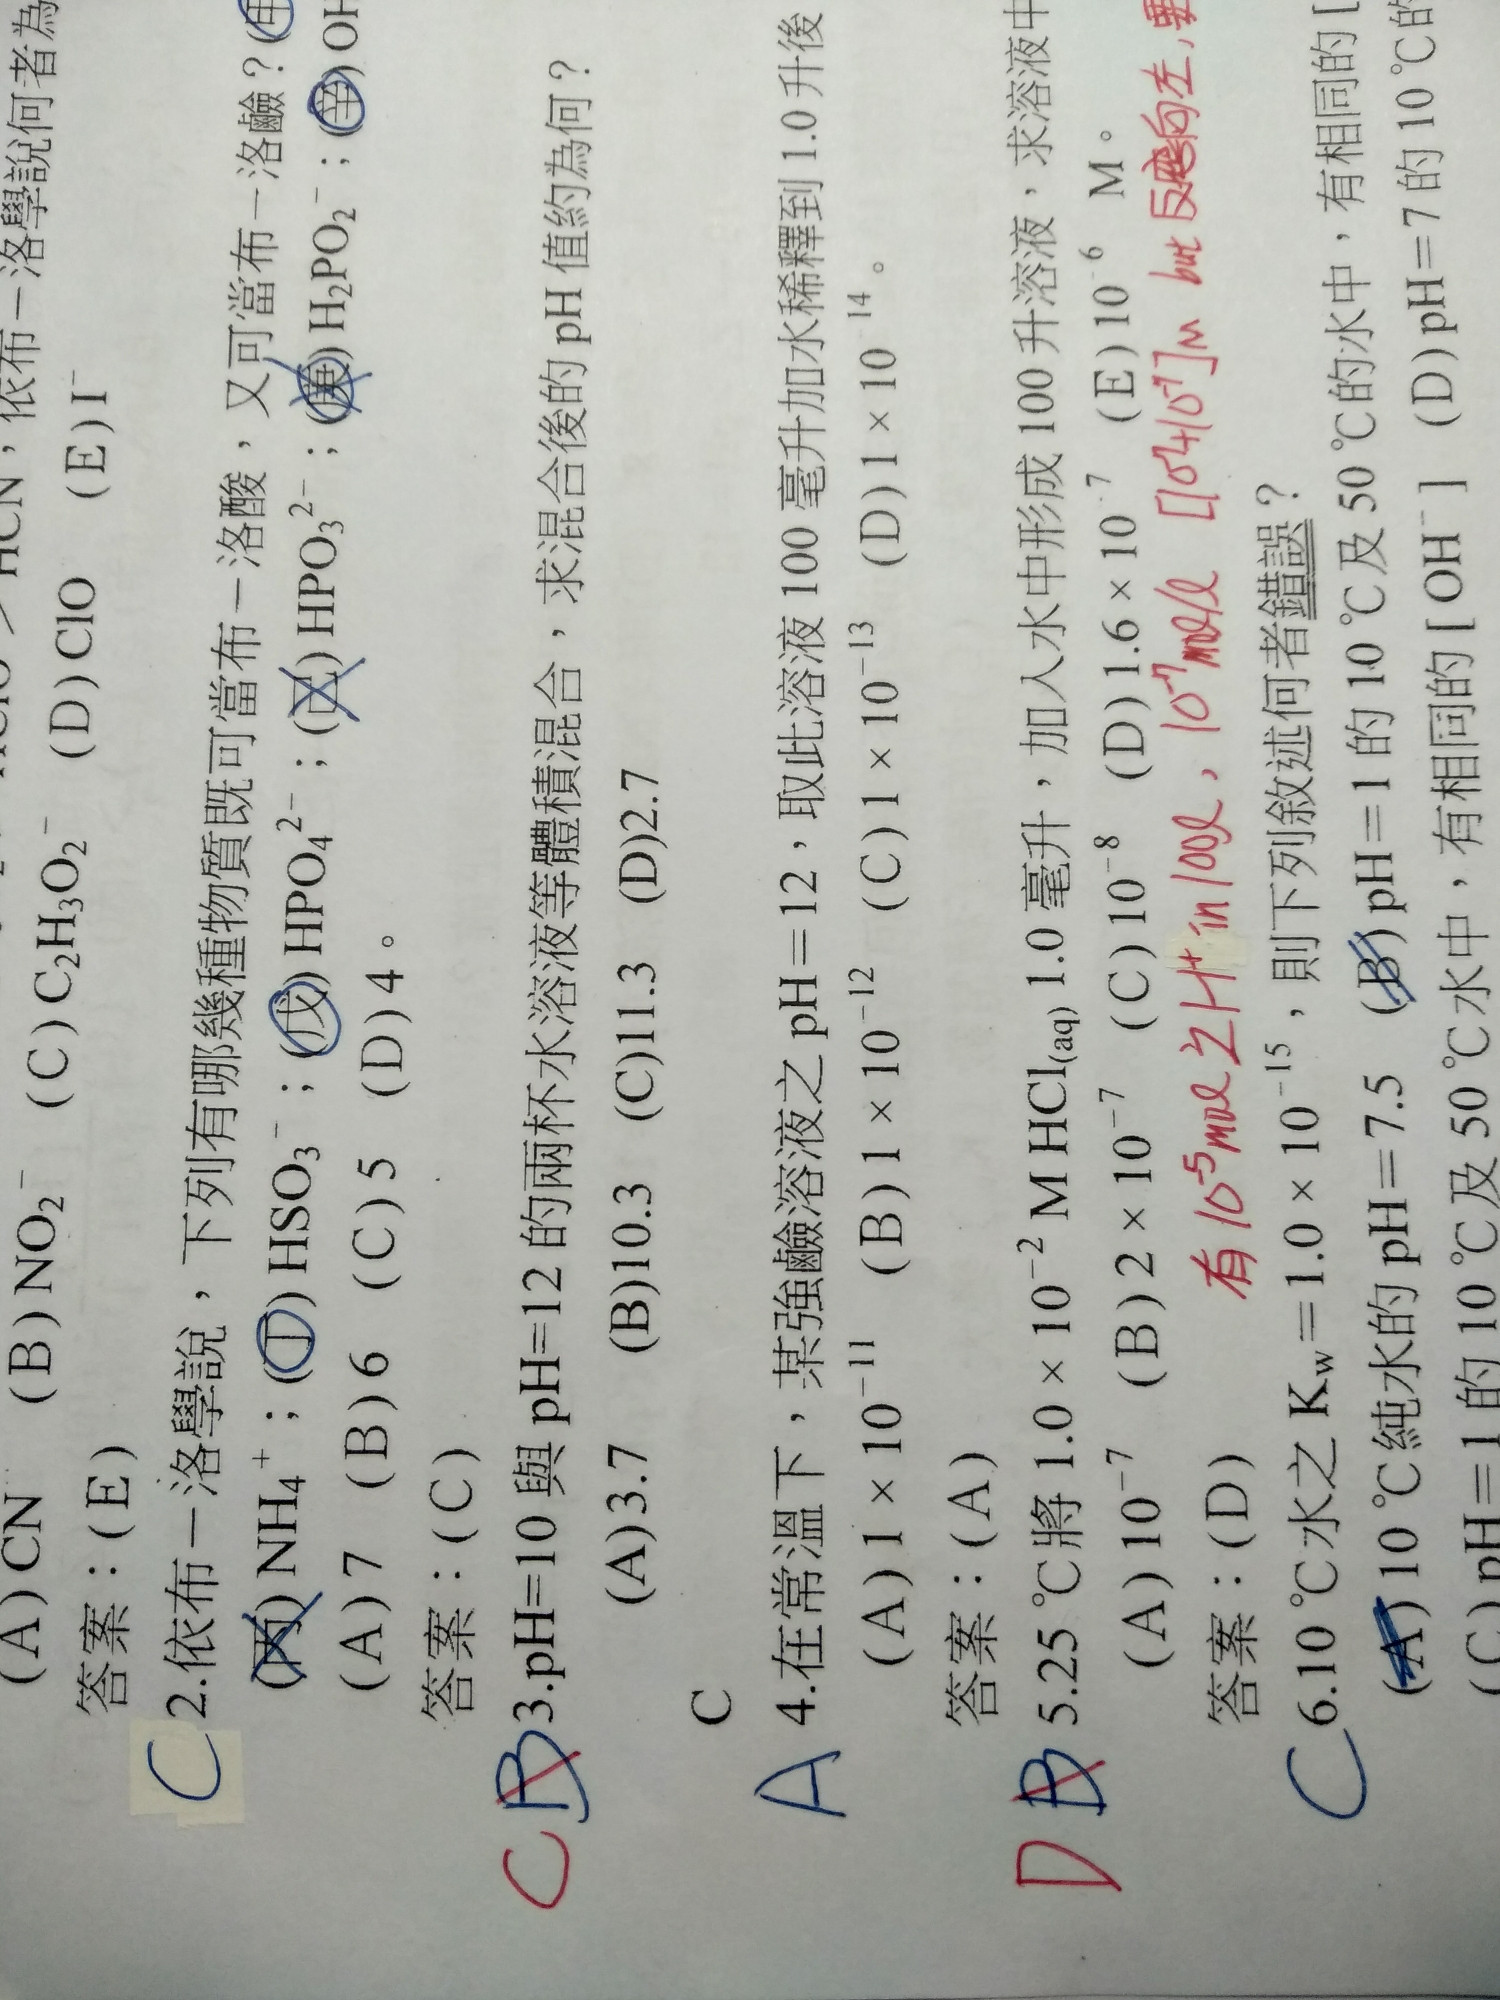 HClO > HCN，依布－洛學說何者為
(A) CN⁻ (B) NO₂⁻ (C) C₂H₃O₂⁻ (D) ClO (E) I⁻
答案：(E)
C 2.依布－洛學說，下列有哪幾種物質既可當布－洛酸，又可當布－洛鹼？(甲
(丙) NH₄⁺；(丁) HSO₃⁻；(戊) HPO₄²⁻；(己) HPO₃²⁻；(庚) H₂PO₂⁻；(辛) OH
(A) 7 (B) 6 (C) 5 (D) 4。
答案：(C)
C B 3.pH=10 與 pH=12 的兩杯水溶液等體積混合，求混合後的 pH 值約為何？
(A)3.7 (B)10.3 (C)11.3 (D)2.7
C
A 4.在常溫下，某強鹼溶液之 pH＝12，取此溶液 100 毫升加水稀釋到 1.0 升後
(A) 1 × 10⁻¹¹ (B) 1 × 10⁻¹² (C) 1 × 10⁻¹³ (D) 1 × 10⁻¹⁴。
答案：(A)
D B 5.25 ℃將 1.0 × 10⁻² M HCl₍aq₎ 1.0 毫升，加入水中形成 100 升溶液，求溶液中
(A) 10⁻⁷ (B) 2 × 10⁻⁷ (C) 10⁻⁸ (D) 1.6 × 10⁻⁷ (E) 10⁻⁶ M。
有 10⁻⁵mole 之 H⁺ in 100l，10⁻⁷mole/l [10⁻⁷+10⁻⁷]M but 反應向左，要
答案：(D)
C 6.10 ℃水之 Kw＝1.0 × 10⁻¹⁵，則下列敘述何者錯誤？
(A) 10 ℃純水的 pH＝7.5 (B) pH＝1 的 10 ℃及 50 ℃的水中，有相同的 [
(C) pH＝1 的 10 ℃及 50 ℃水中，有相同的 [OH⁻] (D) pH＝7 的 10 ℃的